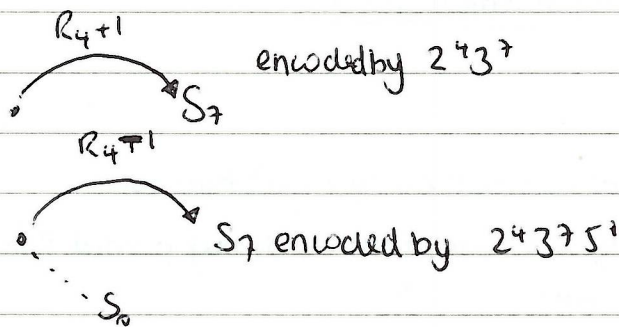 R₄+1
encoded by 2⁴3⁷
S₇
R₄-1
S₇ encoded by 2⁴3⁷5¹